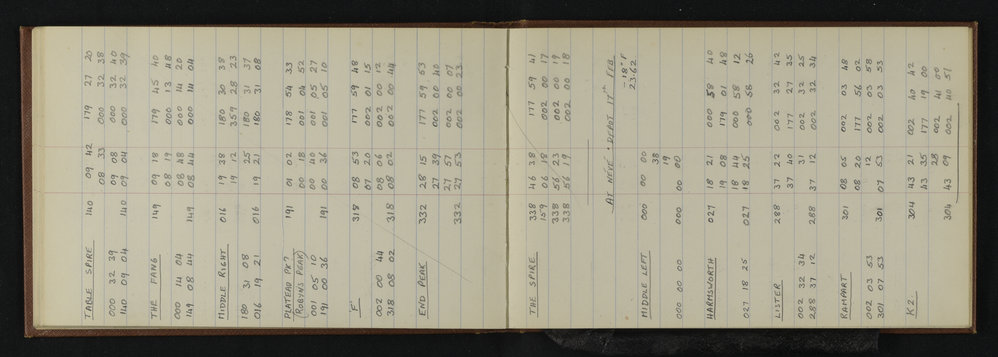 TABLE SPIRE 140 09 42 179 27 20
08 33 000 32 38
000 32 39 09 08 000 32 40
140 09 04 140 09 04 000 32 39
THE FANG 149 09 18 179 45 40
08 19 000 13 48
000 14 04 08 48 000 14 20
149 08 44 149 08 44 000 14 04
MIDDLE RIGHT 016 19 38 180 30 38
19 12 359 28 23
180 31 08 25 180 31 37
016 19 21 016 19 21 180 31 08
PLATEAU PK? 191 01 02 178 54 33
(ROBYNS PEAK) 00 18 001 04 52
001 05 10 00 40 001 05 27
191 00 36 191 00 36 001 05 10
'F' 318 08 53 177 59 48
07 20 002 01 15
002 00 44 08 06 002 00 12
318 08 02 318 08 02 002 00 44
END PEAK 332 28 15 177 59 53
27 39 002 00 40
27 57 002 00 07
332 27 53 002 00 23
THE SPIRE 338 46 38 177 59 41
159 06 18 002 00 17
338 56 23 002 00 19
338 56 19 002 00 18
AT NEVE' DEPOT 17TH FEB.
-18°F
23.62
MIDDLE LEFT 000 00 00
38
19
000 00 00 000 00 00
HARMSWORTH 027 18 21 000 58 40
19 08 179 01 48
18 44 000 58 12
027 18 25 027 18 25 000 58 26
LISTER 288 37 22 002 32 42
37 40 177 27 35
002 32 34 31 002 32 25
288 37 12 288 37 12 002 32 34
RAMPART 301 08 05 002 03 48
08 20 177 56 02
002 03 53 12 002 03 58
301 07 53 301 07 53 002 03 53
K2 304 43 21 002 40 42
43 35 177 19 00
28 002 41 00
304 43 09 002 40 51